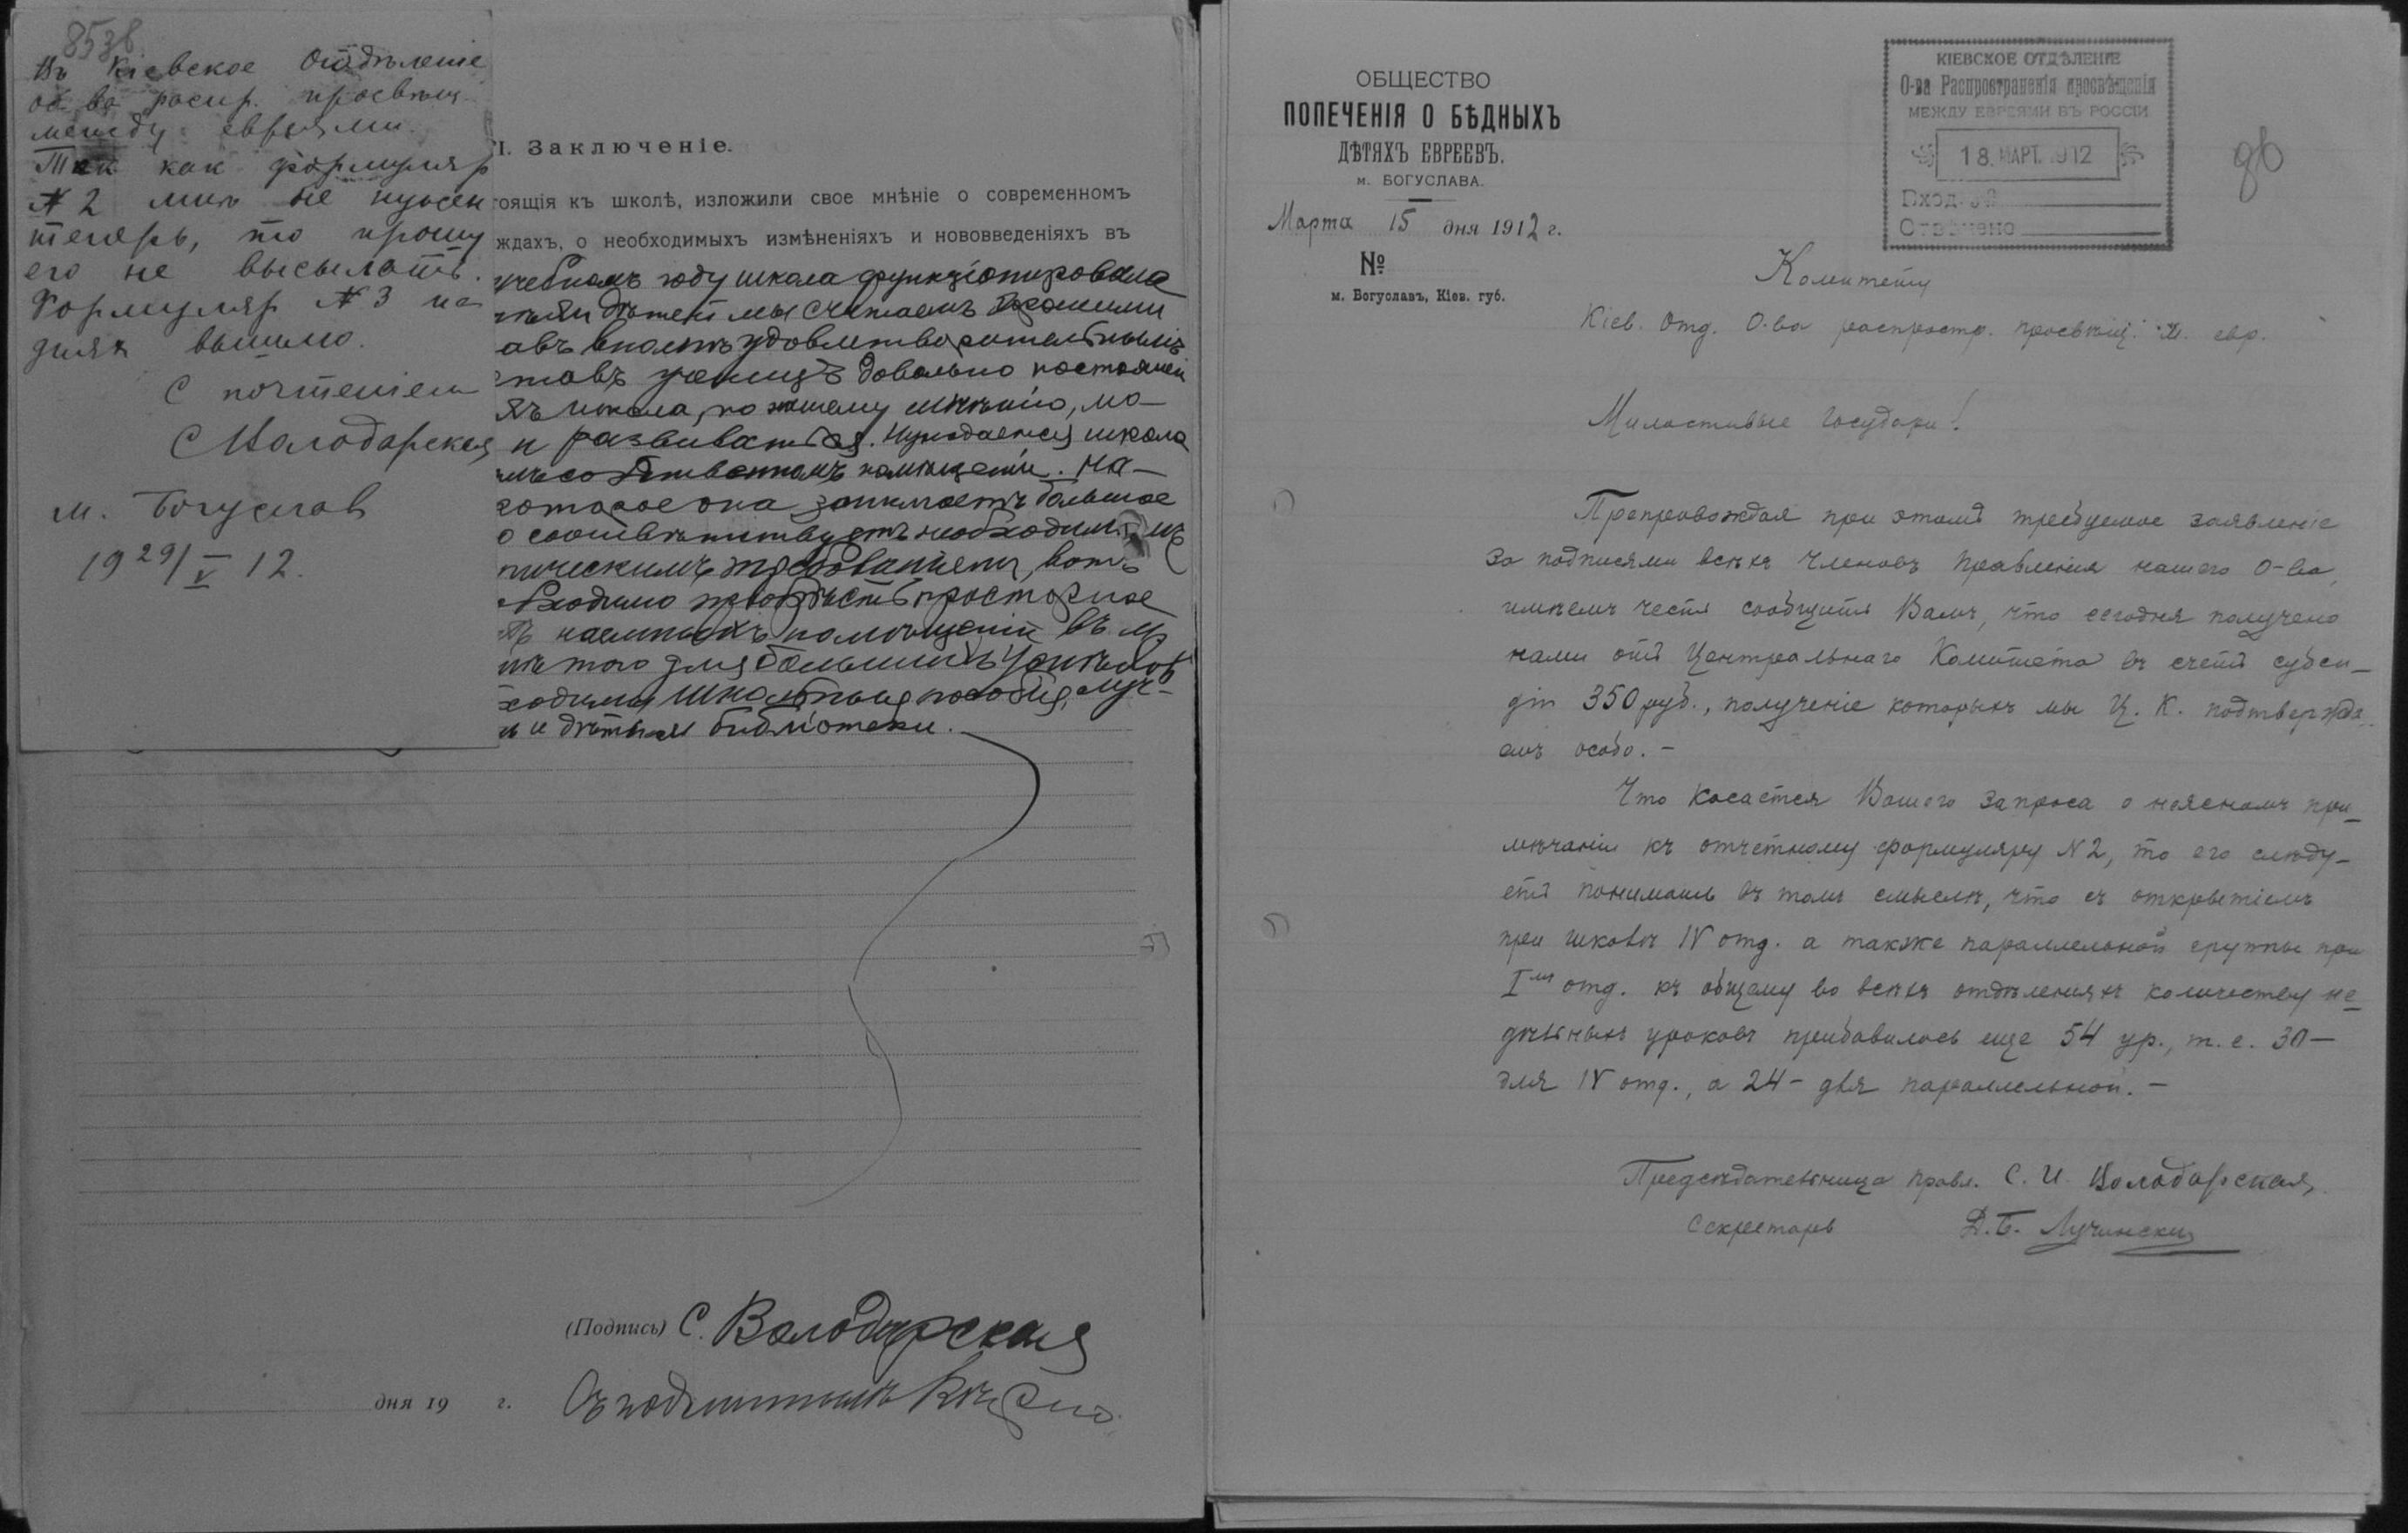 853в
Въ Кіевское Отдѣленіе
об-ва распр. просвѣщ.
между евреями.
Так как формуляр
№ 2 мнѣ не нужен
теперь, то прошу
его не высылать.
Формуляр № 3 на
днях вышлю.
С почтеніем
С Володарская
м. Богуслав
19 29/V 12.
І. Заключеніе.
тоящія къ школѣ, изложили свое мнѣніе о современномъ
ждахъ, о необходимыхъ измѣненіяхъ и нововведеніяхъ въ
учебномъ году школа функціонировала
дѣтей мы считаемъ хорошими
авъ вполнѣ удовлетворительнымъ
ставъ учениц довольно постоянен
школа, по нашему мнѣнію, мо-
и развиваться. Нуждается школа
собственномъ помѣщеніи. На-
которое она занимаетъ большое
о соотвѣтствуетъ необходимымъ
ническимъ требованіем, вотъ
обходимо пріобрѣсть просторное
наемныхъ помѣщеній въ м.
того для большихъ успѣховъ
ходимы школьныя пособія, луч-
и дѣтская библіотеки.
(Подпись) С. Володарская
дня 19 г. Съ подлиннымъ вѣрно.
ОБЩЕСТВО
ПОПЕЧЕНІЯ О БѢДНЫХЪ
ДѢТЯХЪ ЕВРЕЕВЪ.
м. БОГУСЛАВА.
Марта 15 дня 1912 г.
№
м. Богуславъ, Кіев. губ.
КІЕВСКОЕ ОТДѢЛЕНІЕ
О-ва Распространенія просвѣщенія
МЕЖДУ ЕВРЕЯМИ ВЪ РОССІИ
18. МАРТ. 1912
Вход. №
Отвѣчено
Комитету
Кіев. Отд. О-ва распростр. просвѣщ. м. евр.
Милостивые Государи!
Препровождая при этомъ требуемое заявленіе
за подписями всѣхъ членовъ Правленія нашего О-ва,
имѣемъ честь сообщить Вамъ, что сегодня получено
нами отъ Центральнаго Комитета въ счетъ субси-
діи 350 руб., полученіе которыхъ мы Ц. К. подтвержда-
емъ особо. -
Что касается Вашего запроса о неясномъ при-
мѣчаніи къ отчетному формуляру N 2, то его слѣду-
етъ понимать въ томъ смыслѣ, что съ открытіемъ
при школѣ IV отд. а также параллельной группы при
I-мъ отд. къ общему во всѣхъ отдѣленіяхъ количеству не-
дѣльныхъ уроковъ прибавилось еще 54 ур., т. е. 30 —
для IV отд., а 24 - для параллельной. -
Предсѣдательница правл. С. И. Володарская
Секретарь Д. Б. Лучински